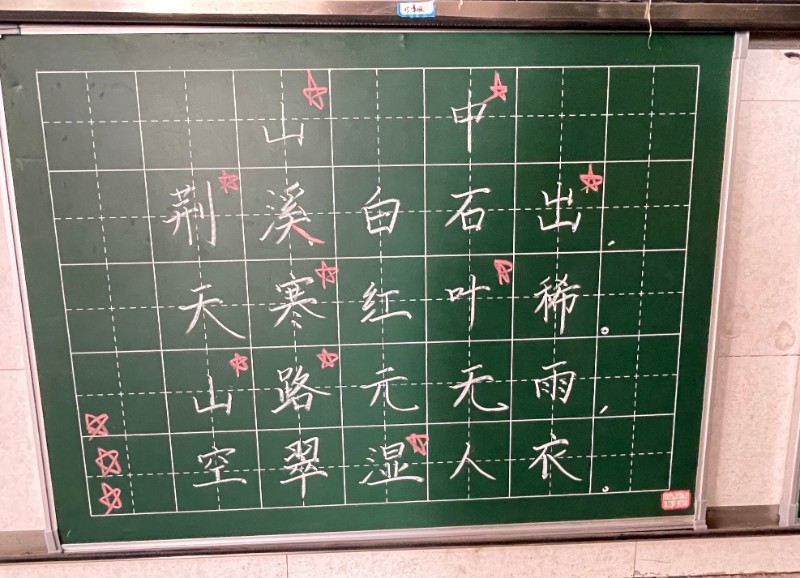 山中
荆溪白石出，
天寒红叶稀。
山路元无雨，
空翠湿人衣。